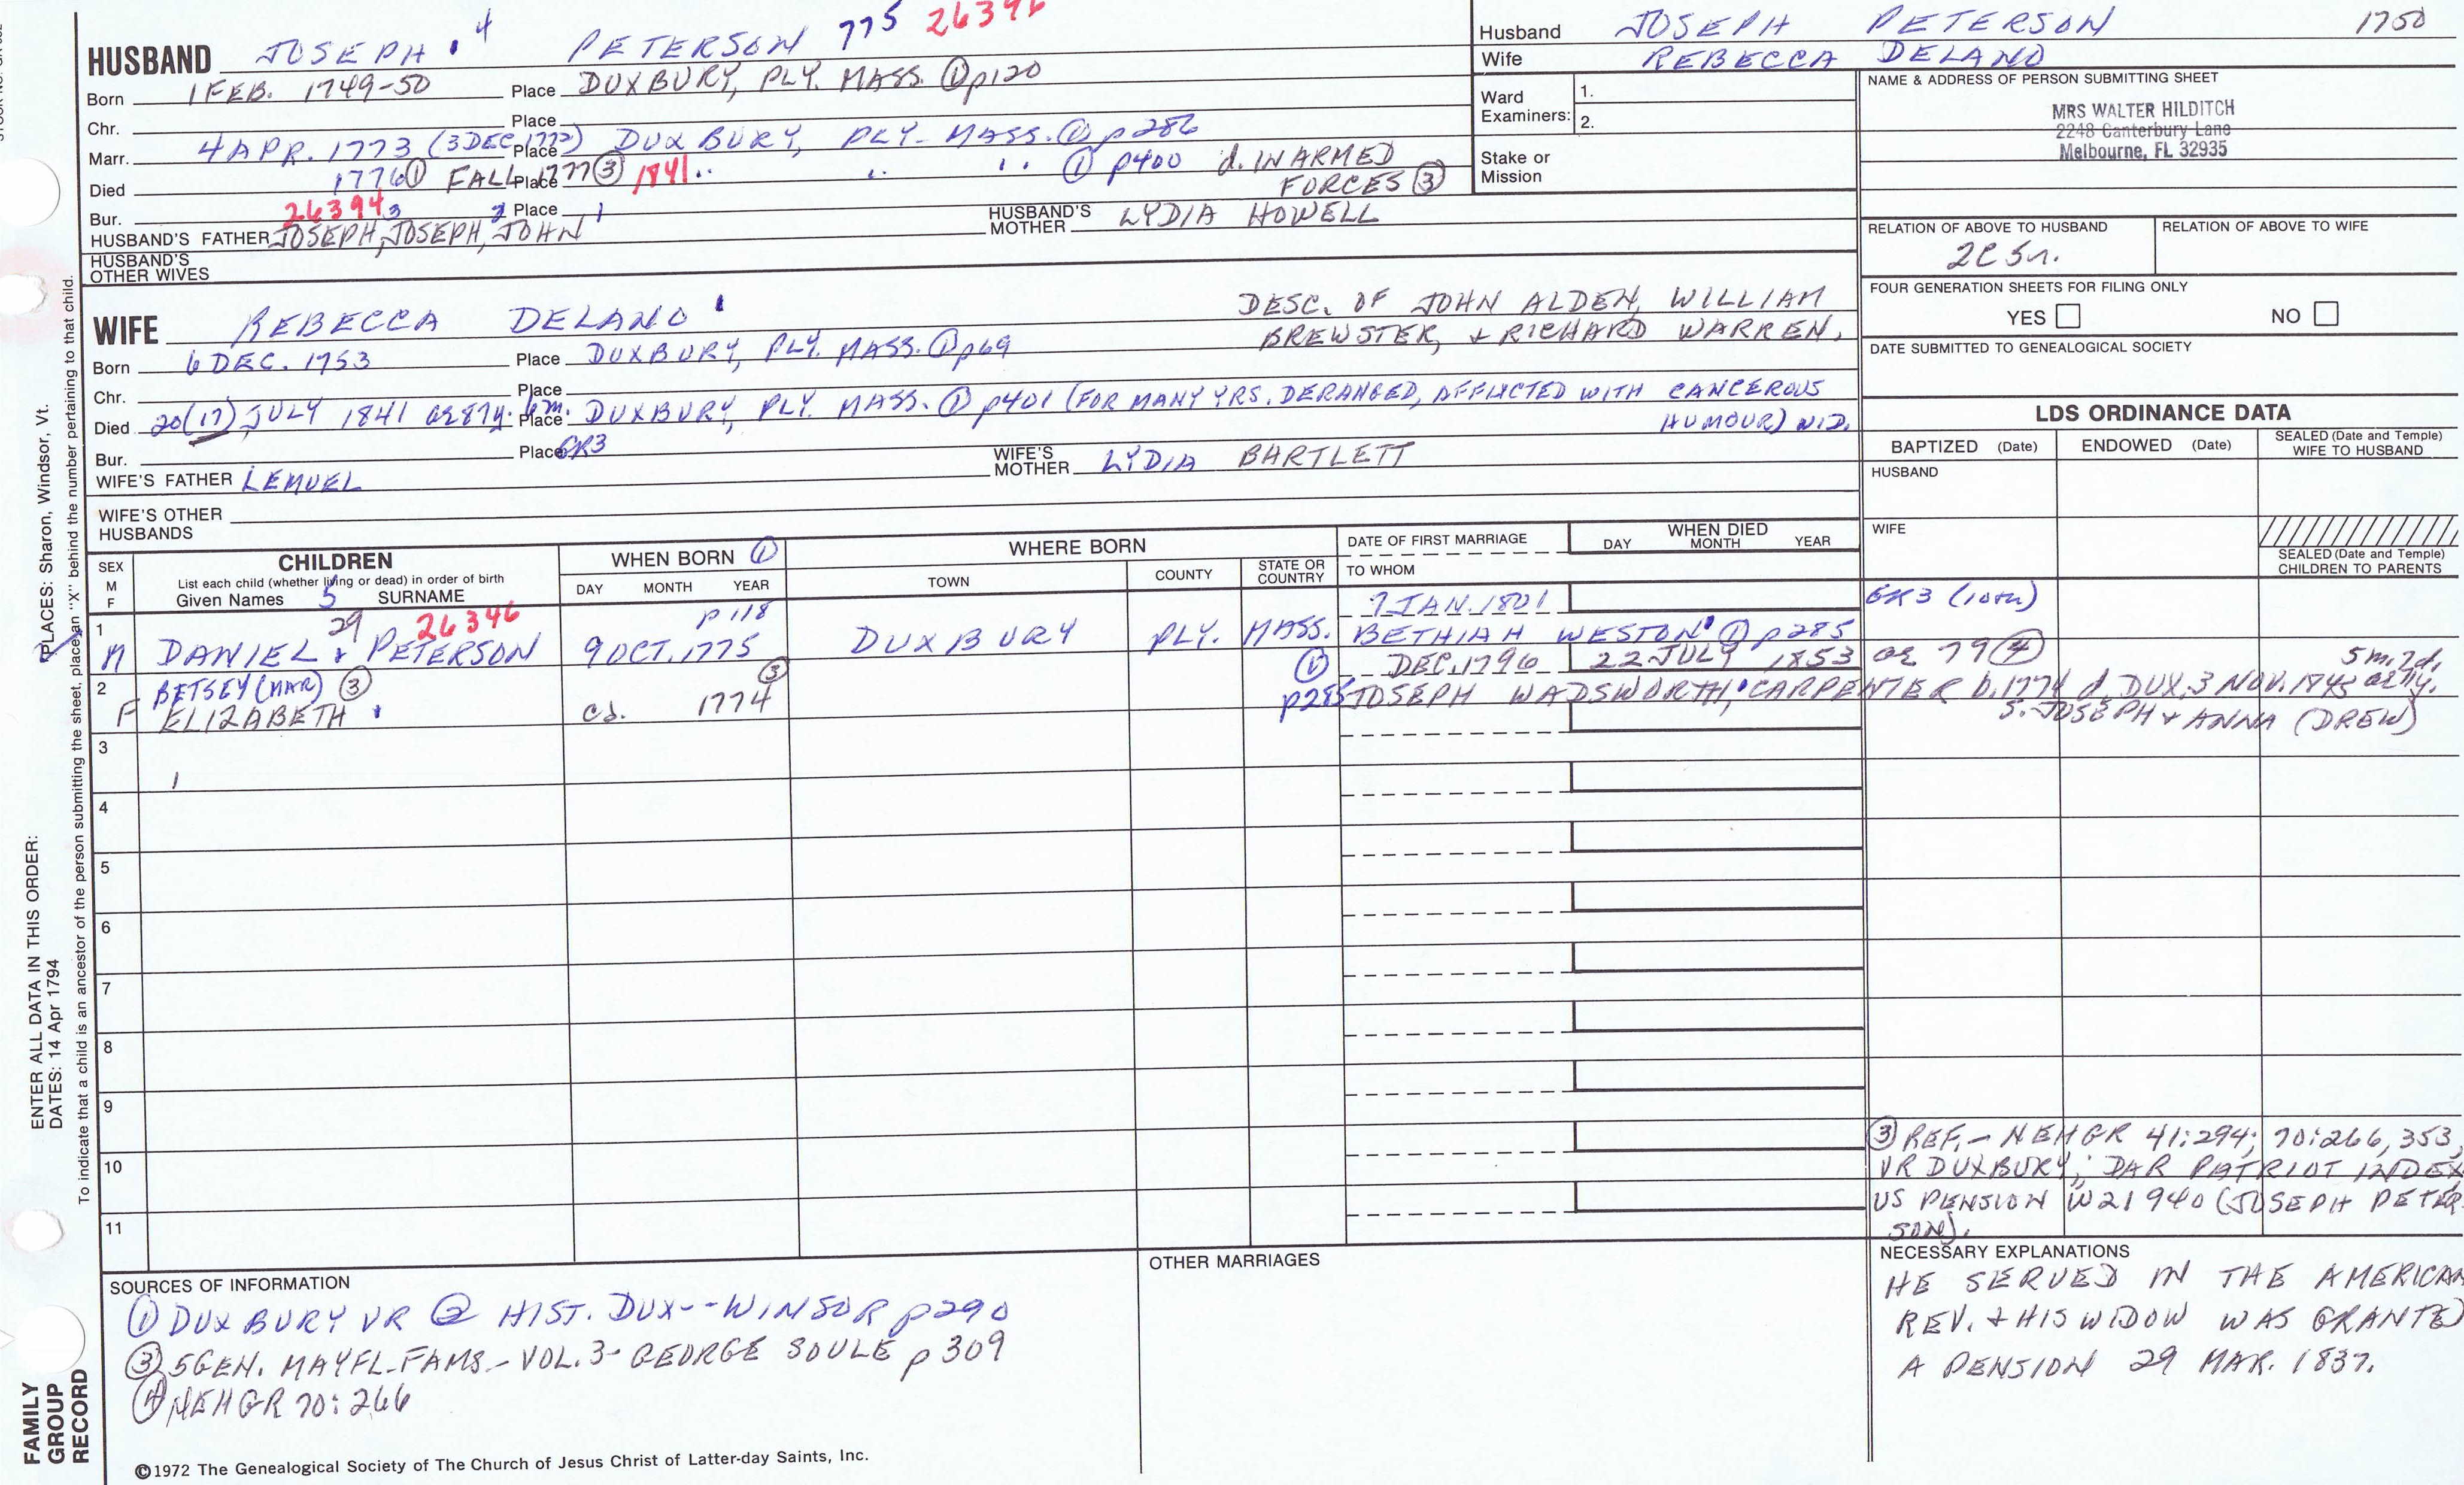 HUSBAND JOSEPH 4 PETERSON 775
Born 1 FEB. 1749-50 Place DUXBURY, PLY. MASS. ① p120
Chr. Place
Marr. 4 APR. 1773 (3 DEC 1772) Place DUXBURY, PLY- MASS. ① p286
Died 1776 ① FALL 1777 ③ 1841 Place .. .. .. ① p400 d. IN ARMED
FORCES ③
Bur. Place
26394
3 2 1
HUSBAND'S FATHER JOSEPH, JOSEPH, JOHN HUSBAND'S MOTHER LYDIA HOWELL
HUSBAND'S OTHER WIVES
Husband JOSEPH PETERSON 1750
Wife REBECCA DELANO
Ward Examiners: 1.
2.
Stake or Mission
NAME & ADDRESS OF PERSON SUBMITTING SHEET
MRS WALTER HILDITCH
2248 Canterbury Lane
Melbourne, FL 32935
RELATION OF ABOVE TO HUSBAND RELATION OF ABOVE TO WIFE
2C 5r.
FOUR GENERATION SHEETS FOR FILING ONLY
YES NO
DATE SUBMITTED TO GENEALOGICAL SOCIETY
WIFE REBECCA DELANO
DESC. OF JOHN ALDEN, WILLIAM
BREWSTER, + RICHARD WARREN.
Born 6 DEC. 1753 Place DUXBURY, PLY. MASS. ① p69
Chr. Place
Died 20(17) JULY 1841 ae 87y. 6m. Place DUXBURY, PLY. MASS. ① p401 (FOR MANY YRS. DERANGED, AFFLICTED WITH CANCEROUS
HUMOUR) WID.
Bur. Place GR3
WIFE'S FATHER LEMUEL WIFE'S MOTHER LYDIA BARTLETT
WIFE'S OTHER HUSBANDS
LDS ORDINANCE DATA
BAPTIZED (Date) ENDOWED (Date) SEALED (Date and Temple) WIFE TO HUSBAND
HUSBAND
WIFE
SEALED (Date and Temple) CHILDREN TO PARENTS
SEX M F
CHILDREN
List each child (whether living or dead) in order of birth
Given Names 5 SURNAME
WHEN BORN ①
DAY MONTH YEAR
WHERE BORN
TOWN COUNTY STATE OR COUNTRY
DATE OF FIRST MARRIAGE
TO WHOM
WHEN DIED
DAY MONTH YEAR
29 26346 p118 7 JAN. 1801 GR3 (10th)
1 M DANIEL PETERSON 9 OCT. 1775 DUXBURY PLY. MASS. BETHIAH WESTON ① p285
22 JULY 1853 ae 79 ④
2 BETSEY (MAR) ③ ③ ① DEC. 1796 5m. 7d.
F ELIZABETH ca. 1774 p285 JOSEPH WADSWORTH, CARPENTER b. 1774 d. DUX. 3 NOV. 1845 ae 71y.
S. JOSEPH + ANNA (DREW)
3
4
5
6
7
8
9
10
11
③ REF.- NEHGR 41:294; 70:266, 353,
VR DUXBURY; DAR PATRIOT INDEX
US PENSION W21940 (JOSEPH PETER-
SON).
SOURCES OF INFORMATION
① DUXBURY VR ② HIST. DUX--WINSOR p290
③ 5 GEN. MAYFL. FAMS- VOL. 3- GEORGE SOULE p 309
④ NEHGR 70:266
OTHER MARRIAGES
NECESSARY EXPLANATIONS
HE SERVED IN THE AMERICAN
REV. + HIS WIDOW WAS GRANTED
A PENSION 29 MAR. 1837.
©1972 The Genealogical Society of The Church of Jesus Christ of Latter-day Saints, Inc.
FAMILY GROUP RECORD
ENTER ALL DATA IN THIS ORDER:
DATES: 14 Apr 1794
PLACES: Sharon, Windsor, Vt.
To indicate that a child is an ancestor of the person submitting the sheet, place an "X" behind the number pertaining to that child.